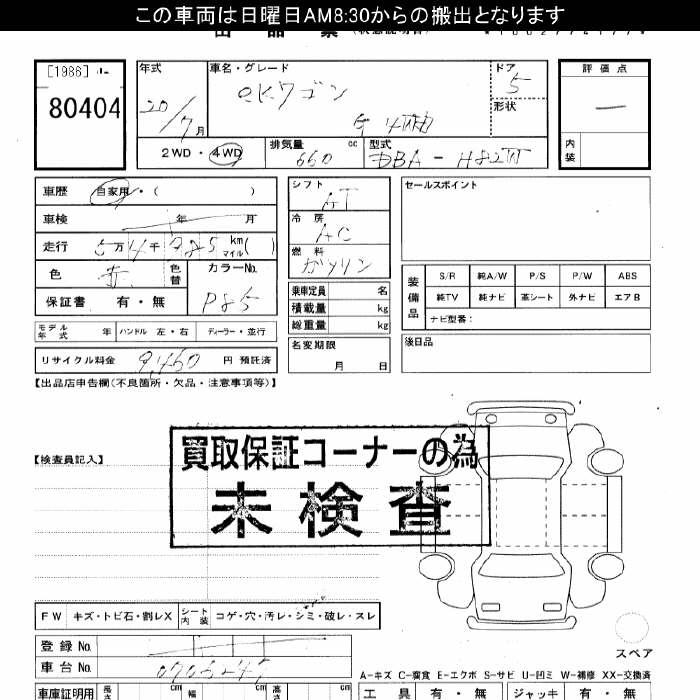 この車両は日曜日AM8:30からの搬出となります
[1986] ﾙｰ
80404
年式 20/7月
車名・グレード eKワゴン G 4WD
ドア 5
形状
2WD・4WD
排気量 660 cc
型式 DBA-H82W
評価点 —
内装
車歴 自家用・( )
車検 年 月
走行 5万4千985 km マイル( )
色 赤 色替 カラーNo. P85
保証書 有・無
モデル年式 年 ハンドル 左・右 ディーラー・並行
リサイクル料金 9,460 円 預託済
シフト AT
冷房 AC
燃料 ガソリン
乗車定員 名
積載量 kg
総重量 kg
名変期限 月 日
セールスポイント
装備品 S/R 純A/W P/S P/W ABS
純TV 純ナビ 革シート 外ナビ エアB
ナビ型番:
後日品
【出品店申告欄(不良箇所・欠品・注意事項等)】
【検査員記入】
買取保証コーナーの為
未検査
FW キズ・トビ石・割レX シート内装 コゲ・穴・汚レ・シミ・破レ・スレ
登録 No.
車台 No. 0703247
スペア
A-キズ C-腐食 E-エクボ S-サビ U-凹ミ W-補修 XX-交換済
車庫証明用 長さ cm 幅 cm 高さ cm
工具 有・無 ジャッキ 有・無